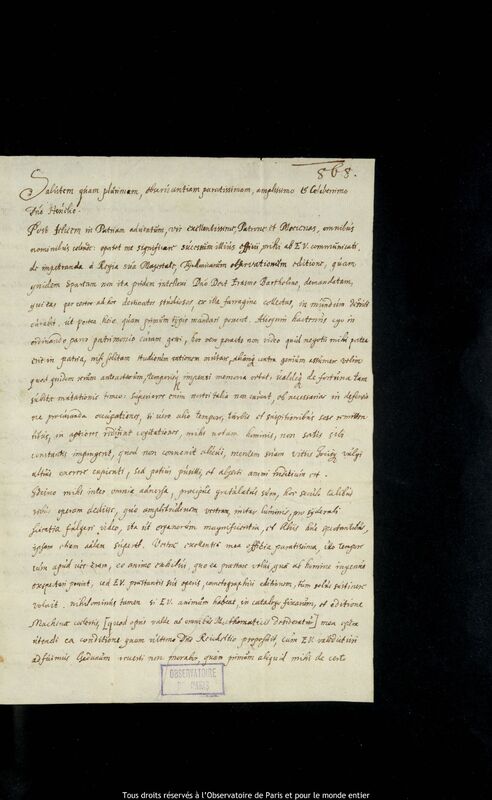 868.
Salutem quam plurimam, observantiam paratissimam, amplissimo et Celeberrimo
Dno Hevelio.
Post felicem in Patriam adventum, vir excellentissime, Patrone et Moecenas, omnibus
nominibus colende: oportet me significare successum illius officii prihi ab E.V. communicati,
de impetranda à Regia sua Majestate, Tychonicarum observationum editione, quam
quidem Spartam non ita pridem intellexi Dno Doct Erasmo Bartholino, demandatam,
qui eas per certos ad hoc destinatos studiosos, ex illa farragine collectas, in mundum
curabit. ut postea hic quam primum typis mandari possent. Attamen hactenus ego in
ordinando parvo patrimonio curam gessi, hoc vero peracto non video quid negotii mihi postea
erit in patria, nisi solitam studiorum rationem mutare, aliamq contra genium assumere velim
quod quidem rerum anteactarum, temporisq impensi memoria vetat,
subitae mutationis timeo: superiores enim nostri talia non curant, ob necessarias in defensio
ne procuranda occupationes, si vero alio tempore, turbis et suspitionibus sese remitten
tibus, in aptiores redirent cogitationes, mihi notam hominis, non satis sibi
constantis impingent, quod non convenit alicui, mentem suam virtus supra vulgi
altius errores rapienti, sed potius pusilli et abjecti animi indicium est.
Ideoque mihi inter omnia adversa, praecipue gratulatus sum, hoc seculo talibus
nobis operam dedisse, quo amplitudinem vestram, instar luminis, pro siderali
scientia fulgere video, ita ut organorum magnificentia, et Urbis huic spectantibus,
ipsam etiam aulam superet. Vestrae excellentiae mea officia paratissima, isto tempor
rum apud vos eram, eo animo exhibui, quo ea praestare volui, quae ab homine ingenuo
exspectari possint, sed E.V. praestantis sui operis, cometographiae editionem, tum solus sustinere
voluit. nihilominus tamen si E.V. animum habeat, in catalogo fixarum, et editione
Machinae coelestis, [quod opus valde ab omnibus Mathematicis desideratur] mea opera
utendi ea conditione quam ultimo Dno Reichellio proposui, cum E.V. valedicturi
adfuimus Gedanum reverti non morabor, quam primum aliquid mihi de certo
OBSERVATOIRE
DE PARIS
Tous droits réservés à l'Observatoire de Paris et pour le monde entier